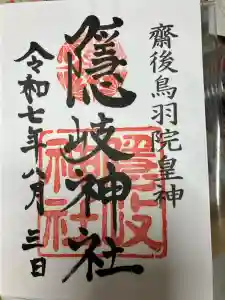 齋後鳥羽院皇神
隠岐神社
令和七年八月三日
隠岐神社